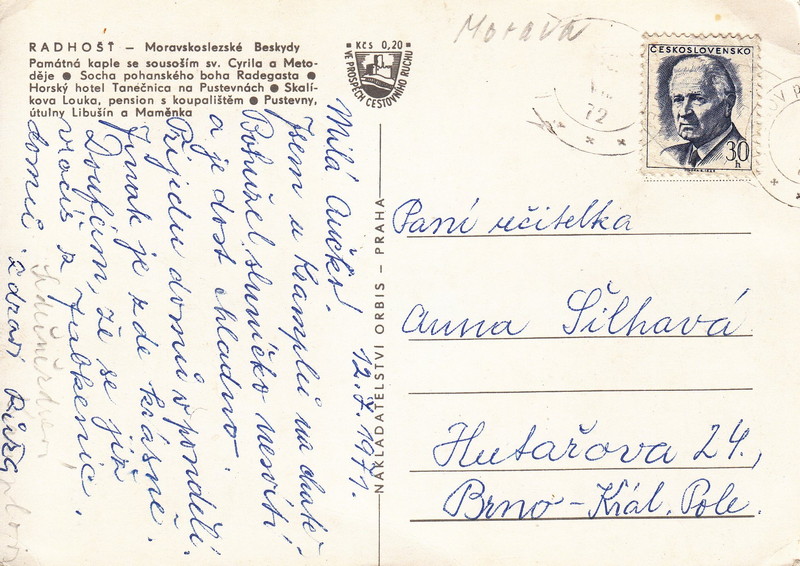 RADHOŠŤ — Moravskoslezské Beskydy
Památná kaple se sousoším sv. Cyrila a Meto-
děje ● Socha pohanského boha Radegasta ●
Horský hotel Tanečnica na Pustevnách ● Skalí-
kova Louka, pension s koupalištěm ● Pustevny,
útulny Libušín a Maměnka
Kčs 0,20
VE PROSPĚCH CESTOVNÍHO RUCHU
Morava
ČESKOSLOVENSKO
30 h
72
NAKLADATELSTVÍ ORBIS – PRAHA
12.X.1971.
Milá
Jsem u na chatě.
Bohužel sluníčko nesvítí
a je dost chladno.
Přijedu domů v pondělí.
Jinak je zde krásně.
Doufám, že se již
vrátíš z Jabkenic.
domů
zdraví Růža
Paní učitelka
Anna Šilhavá
Hutařova 24.,
Brno-Král. Pole.